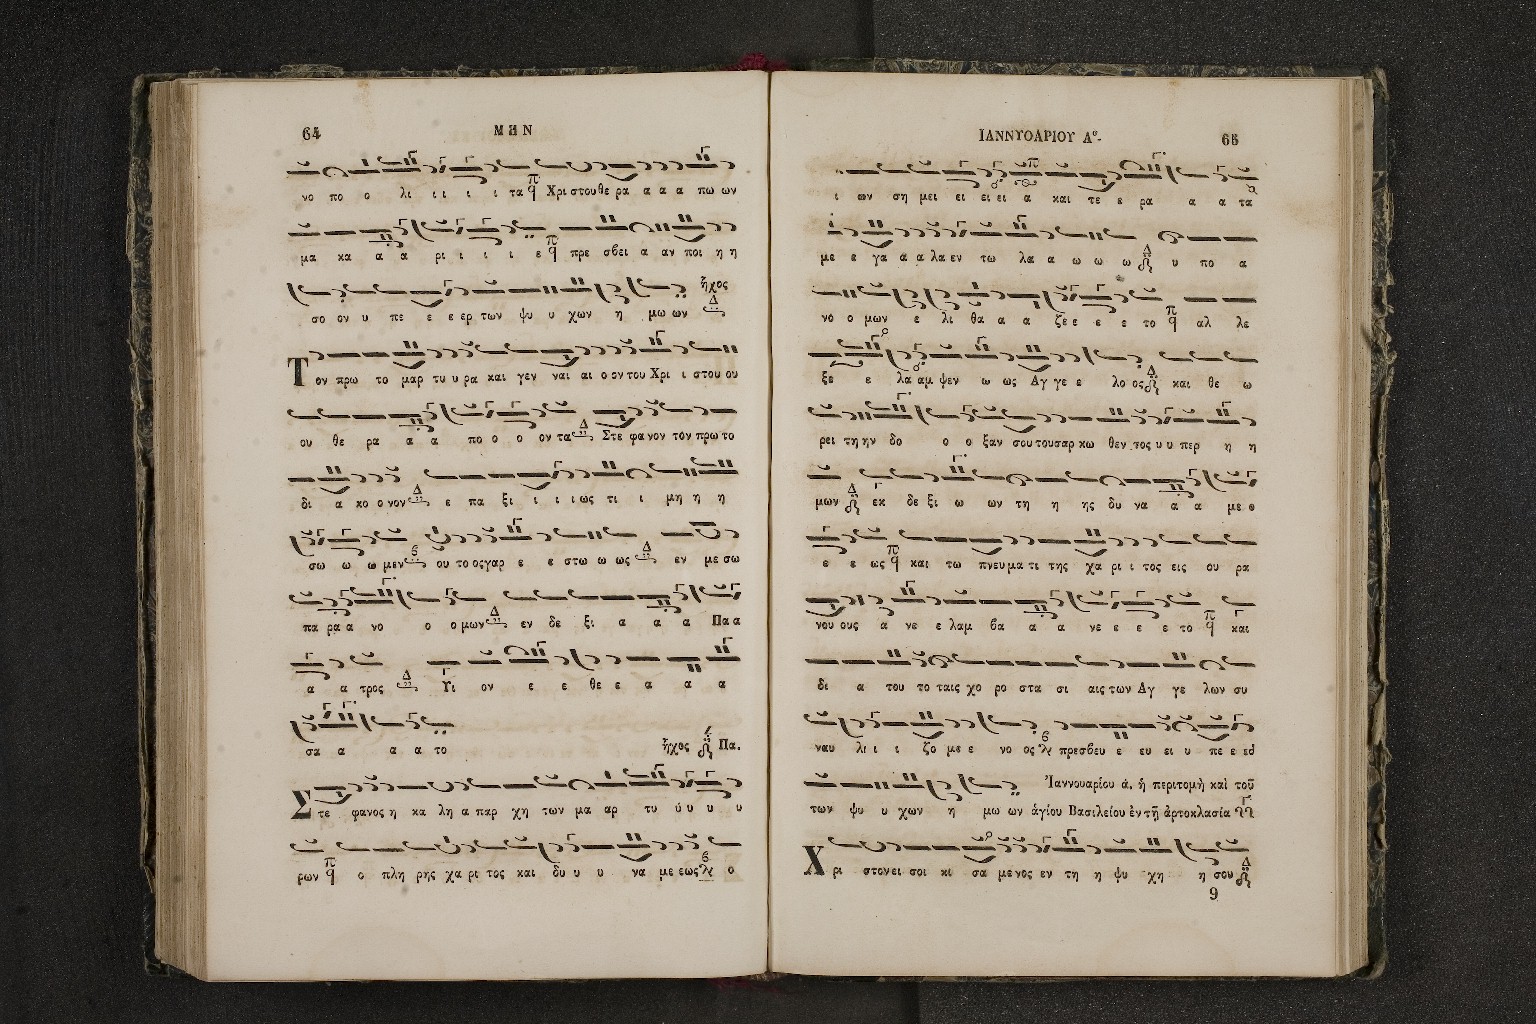 64
ΜΗΝ
νο πο ο λι ι ι ι ι τα Χρι στου θε ρα α α α πω ων
μα κα α α ρι ι ι ι ε πρε σβει α αν ποι η η
σο ον υ πε ε ε ερ των ψυ υ χων η μω ων ἦχος
Τον πρω το μαρ τυ υ ρα και γεν ναι αι ο ον του Χρι ι στου ου
ου θε ρα α α πο ο ο ον τα Στε φα νον τον πρω το
δι α κο ο νον ε πα ξι ι ι ι ως τι ι μη η η
σω ω ω μεν ου το ος γαρ ε ε στω ω ως εν με σω
πα ρα α νο ο ο μων εν δε ξι α α α Πα α
α α τρος Υι ον ε ε θε ε α α α
σα α α α το ἦχος Πα.
Στε φανος η κα λη α παρ χη των μα αρ τυ υ υ υ υ
ρων ο πλη ρης χα ρι τος και δυ υ υ να με εως ο
ΙΑΝΝΥΟΑΡΙΟΥ Αº.
65
ι ων ση μει ει ει ει α και τε ε ρα α α τα
με ε γα α α λα εν τω λα α ω ω ω υ πο α
νο ο μων ε λι θα α α ζε ε ε ε το αλ λε
ξε ε λα αμ ψεν ω ως Αγ γε ε λο ος και θε ω
ρει τη ην δο ο ο ξαν σου του σαρ κω θεν τος υ υ περ η η
μων εκ δε ξι ω ων τη η ης δυ να α α με ε
ε ε ως και τω πνευ μα τι της χα ρι ι τος εις ου ρα
νου ους α νε ε λαμ βα α α νε ε ε ε το και
δι α του το ταις χο ρο στα σι αις των Αγ γε λων συ
ναυ λι ι ι ζο με ε νο ος πρεσβευ ε ευ ει υ πε ε ερ
των ψυ υ χων η μω ων Ἰαννουαρίου ά. ἡ περιτομὴ καὶ τοῦ
ἁγίου Βασιλείου ἐν τῇ ἀρτοκλασία
Χρι στον ει σοι κι σα με νος εν τη η ψυ χη η σου
9